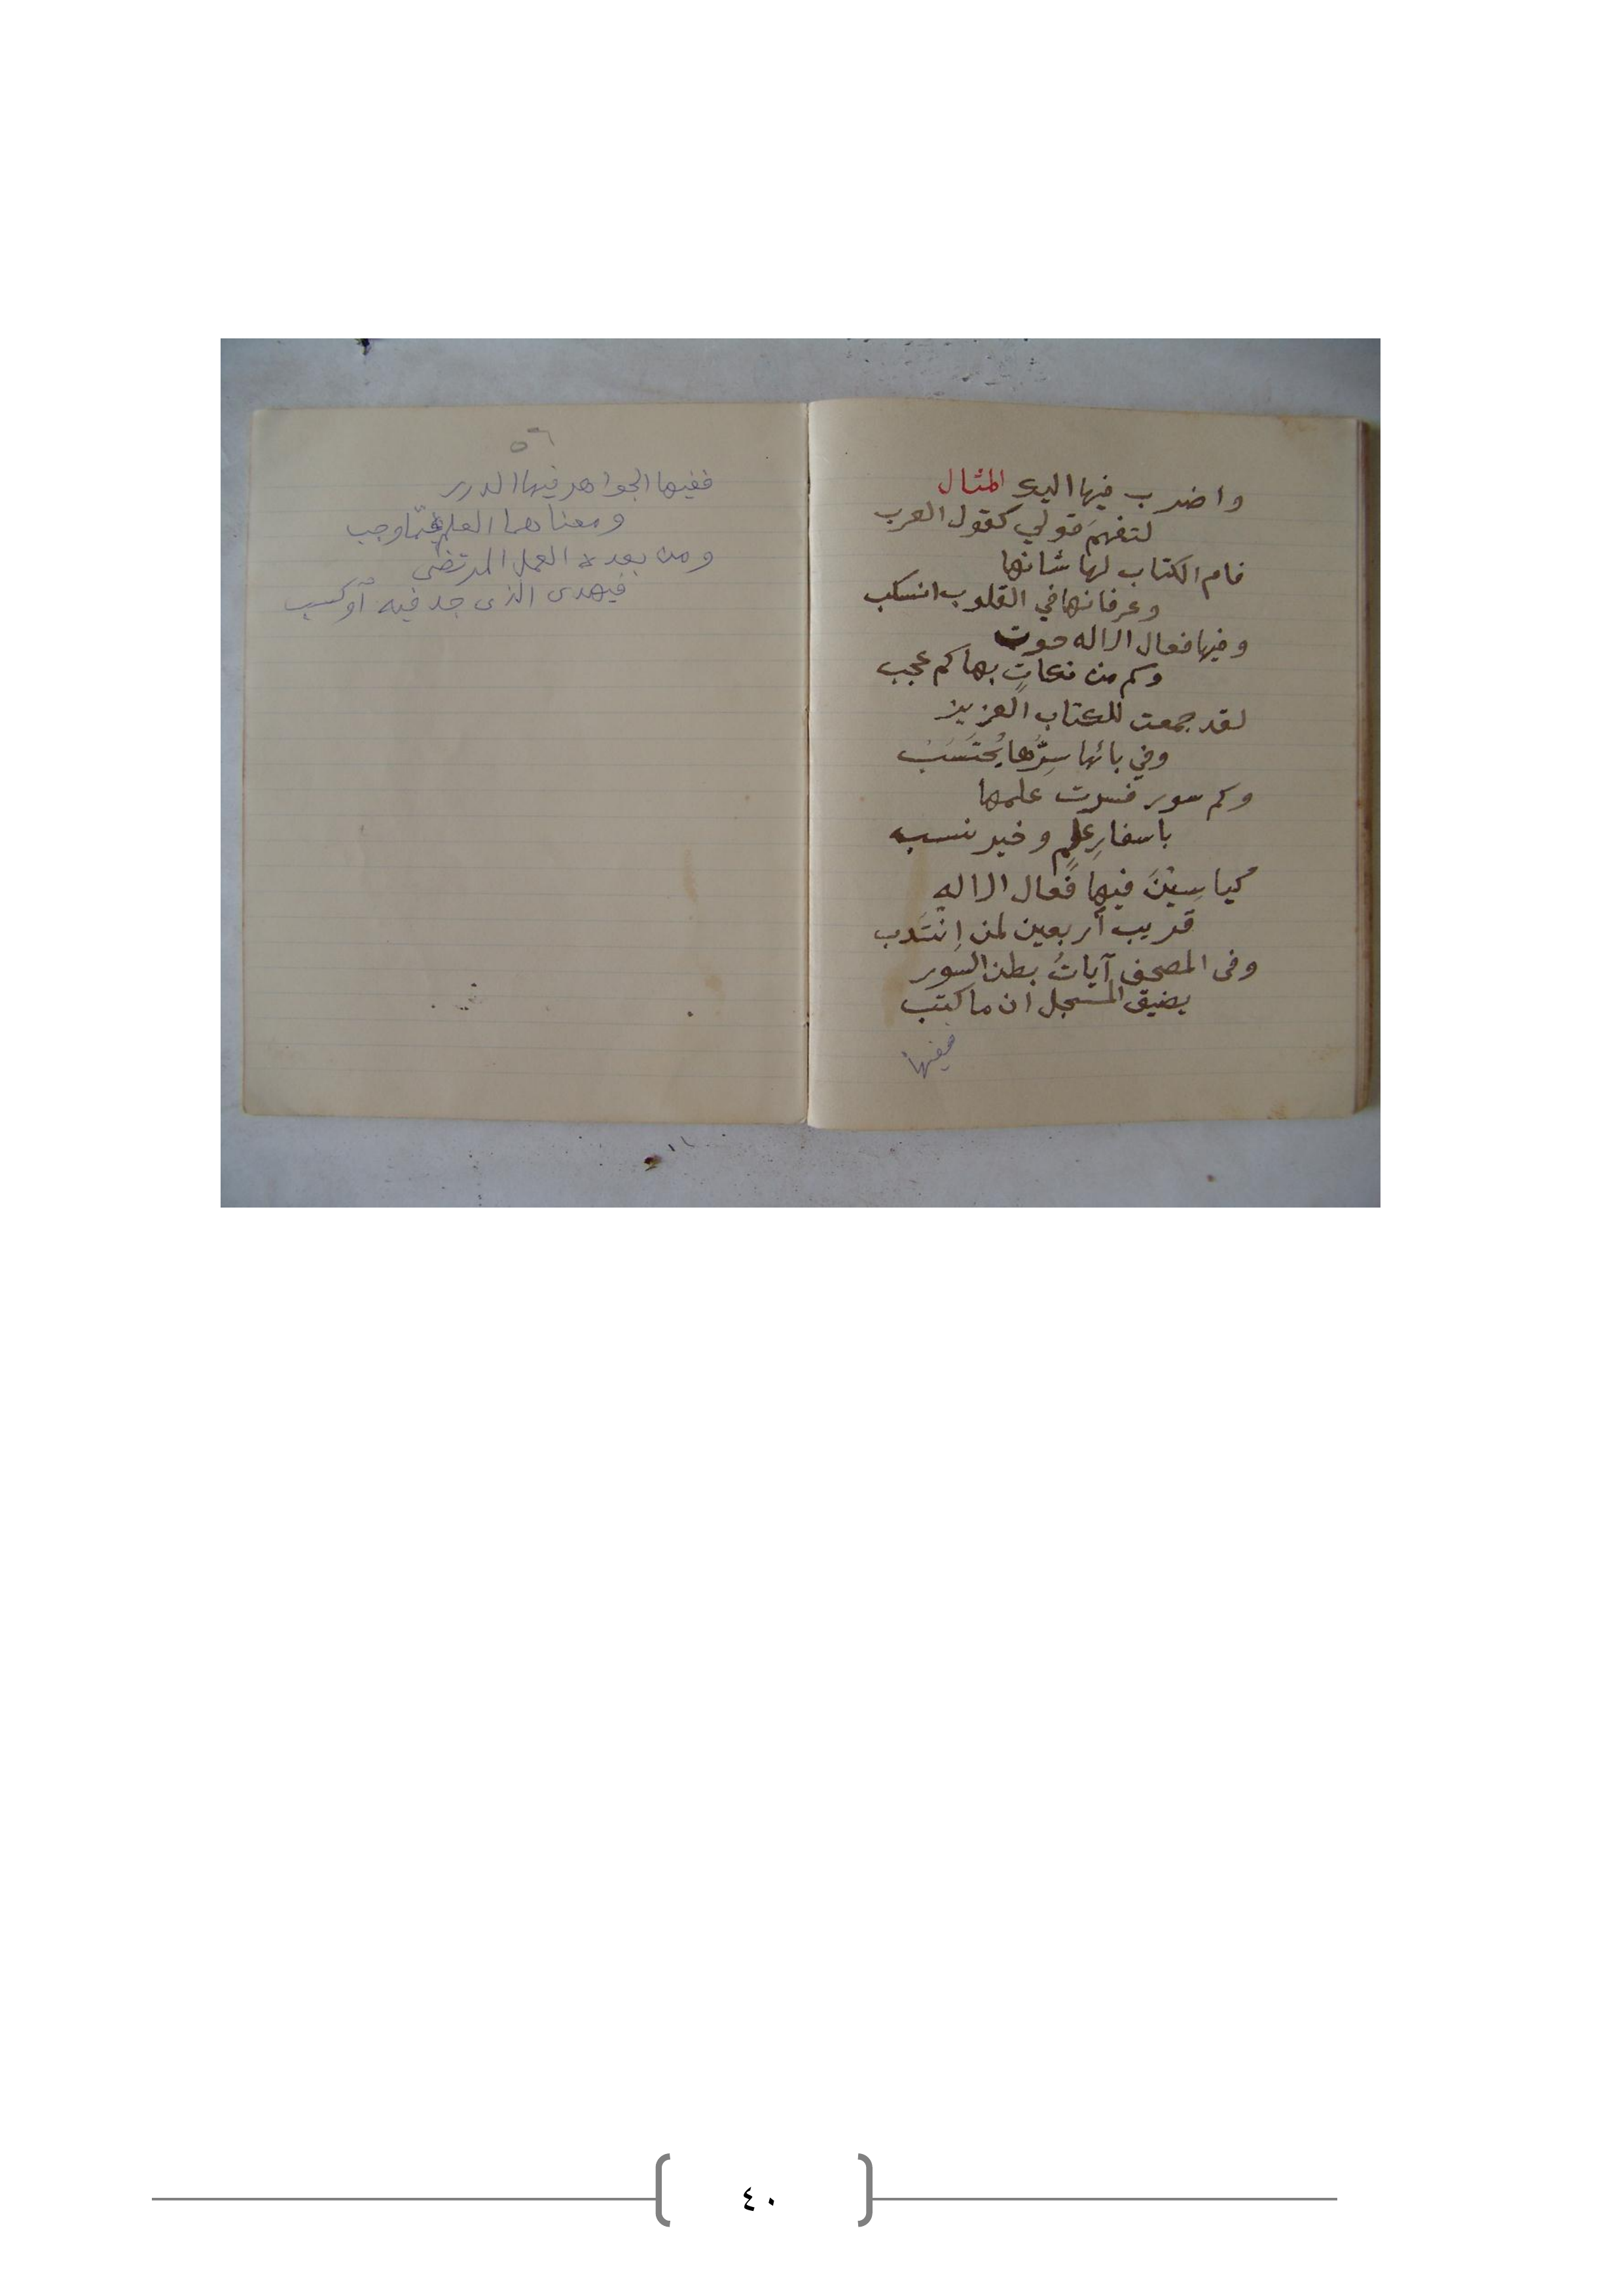 واضرب فيها اليك المثال
لتفهمَ قولي كقول العرب
فام الكتاب لها شانها
وعرفانها في القلوب انسكب
وفيها فعال الاله حوت
وكم من نكاتٍ بها كم عجب
لقد جمعت للكتاب العزيز
وفي بائها سِرُّها يُحتَسَبْ
وكم سور فسرت علمها
باسفارِ علمٍ وخير نسب
كياسِيْنَ فيها فعال الاله
قريب أربعين لمن اِنْتَدب
وفى المصحف آياتُ بطن السور
يضيق المسجل ان ما كتب
ففيها
٥٦
ففيها الجواهر فيها الدرر
ومعناهما العلم حتما وجب
ومن بعده العمل المرتضى
فيهدى الذى جد فيه أوكسب
٤٠